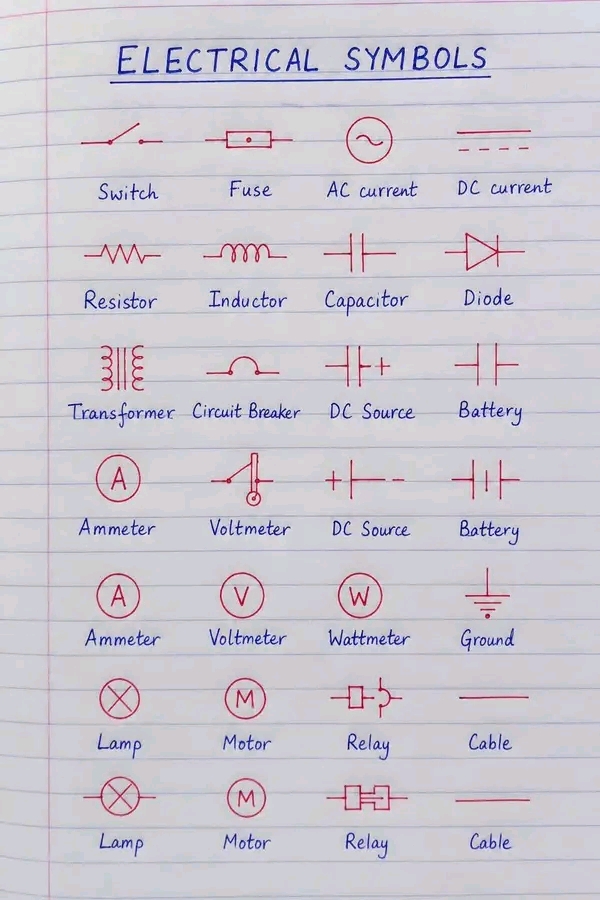 ELECTRICAL SYMBOLS
Switch Fuse AC current DC current
Resistor Inductor Capacitor Diode
+
Transformer Circuit Breaker DC Source Battery
A + -
Ammeter Voltmeter DC Source Battery
A V W
Ammeter Voltmeter Wattmeter Ground
M
Lamp Motor Relay Cable
M
Lamp Motor Relay Cable